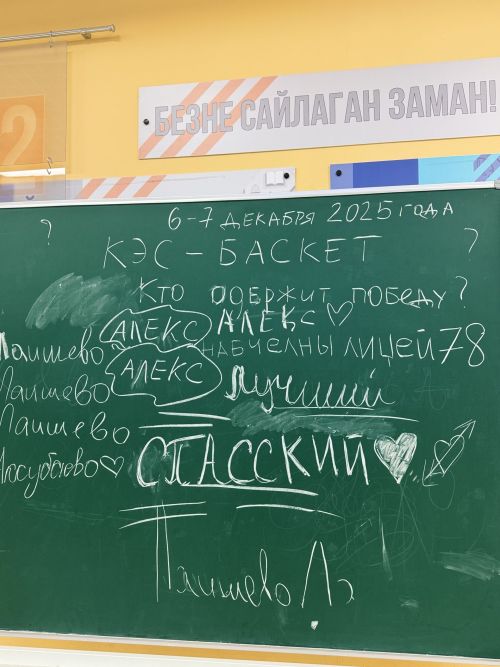 2
БЕЗНЕ САЙЛАГАН ЗАМАН!
? 6-7 ДЕКАБРЯ 2025 ГОДА
КЭС - БАСКЕТ ?
Кто одержит победу?
АЛЕКС АЛЕКС ♡
Лаишево НАБЧЕЛНЫ ЛИЦЕЙ 78
Лаишево АЛЕКС
Лучший
Лаишево
Аксубаево ♡ СПАССКИЙ ♡
Лаишево